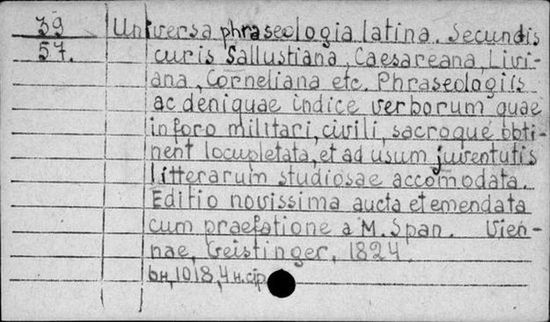 39 Universa phraseologia latina. Secundis
57. curis Sallustiana, Caesareana, Livi-
ana, Corneliana etc. Phraseologiis
ac denique indice verborum quae
in foro militari, civili, sacroque obti-
nent locupletata, et ad usum juventutis
litterarum studiosae accomodata.
Editio novissima aucta et emendata
cum praefatione a M. Span. Vien-
nae, Geistinger, 1824.
6н, 1018, 4 н. стр